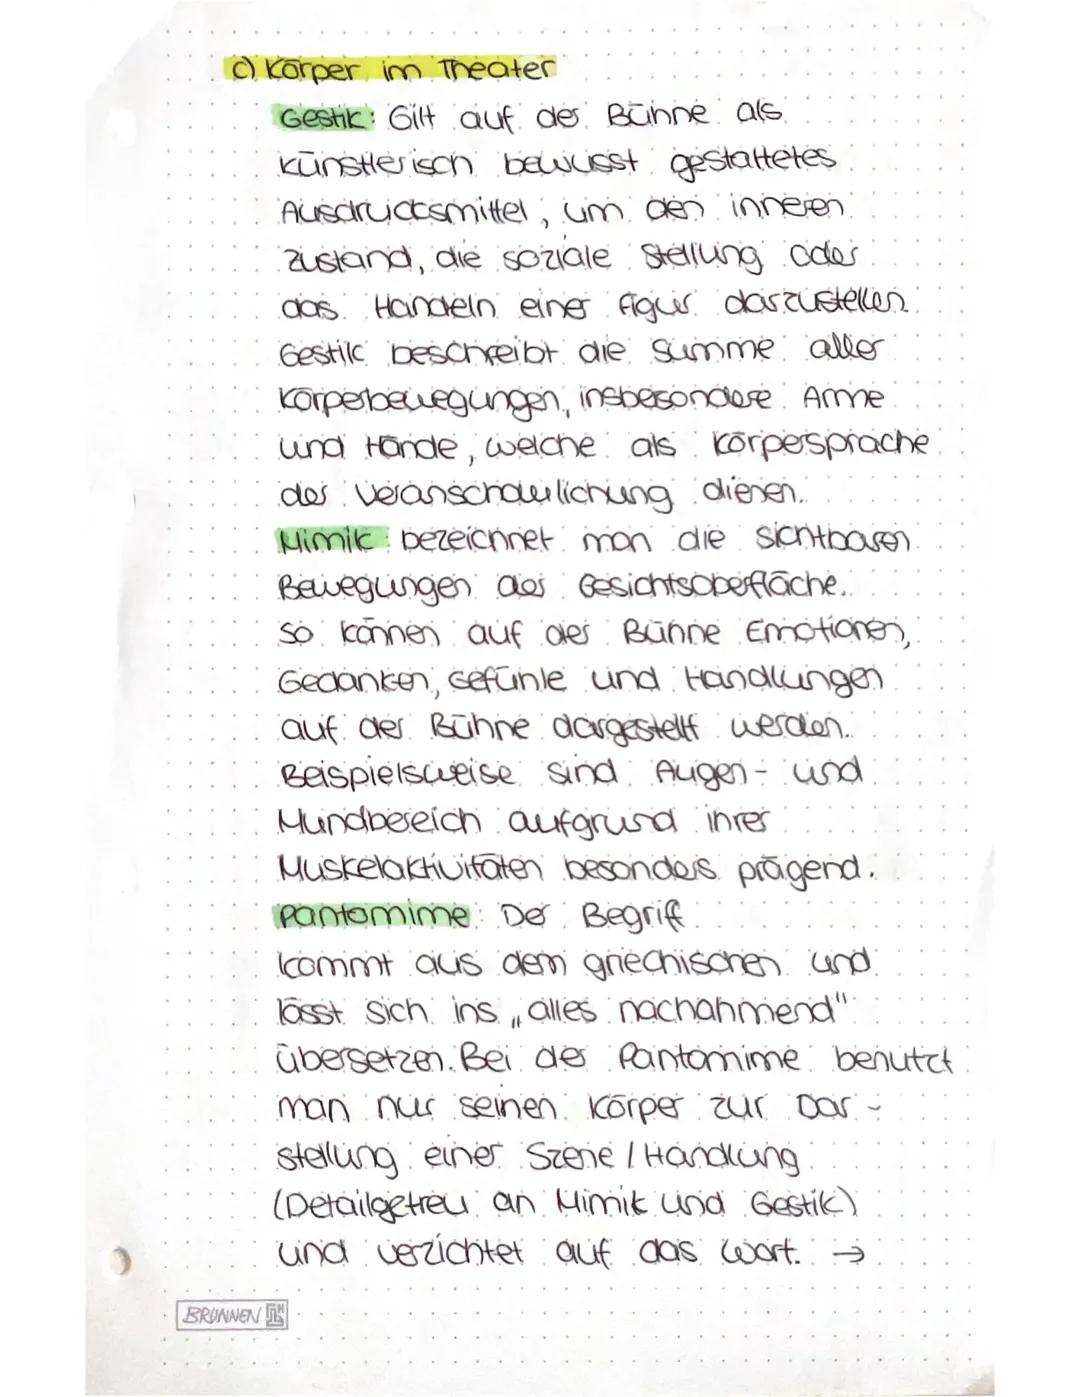 c) Körper im Theater
Gestik: Gilt auf der Bühne als
künstlerisch bewusst gestaltetes
Ausdrucksmittel, um den inneren
Zustand, die soziale Stellung oder
das Handeln einer Figur darzustellen.
Gestik beschreibt die Summe aller
Körperbewegungen, insbesondere Arme
und Hände, welche als Körpersprache
der Veranschaulichung dienen.
Mimik bezeichnet man die sichtbaren
Bewegungen der Gesichtsoberfläche.
So können auf der Bühne Emotionen,
Gedanken, Gefühle und Handlungen
auf der Bühne dargestellt werden.
Beispielsweise sind Augen- und
Mundbereich aufgrund ihrer
Muskelaktivitäten besonders prägend.
Pantomime: Der Begriff
kommt aus dem griechischen und
lässt sich ins „alles nachahmend"
übersetzen. Bei der Pantomime benutzt
man nur seinen Körper zur Dar-
stellung einer Szene / Handlung
(Detailgetreu an Mimik und Gestik)
und verzichtet auf das Wort. →
BRUNNEN